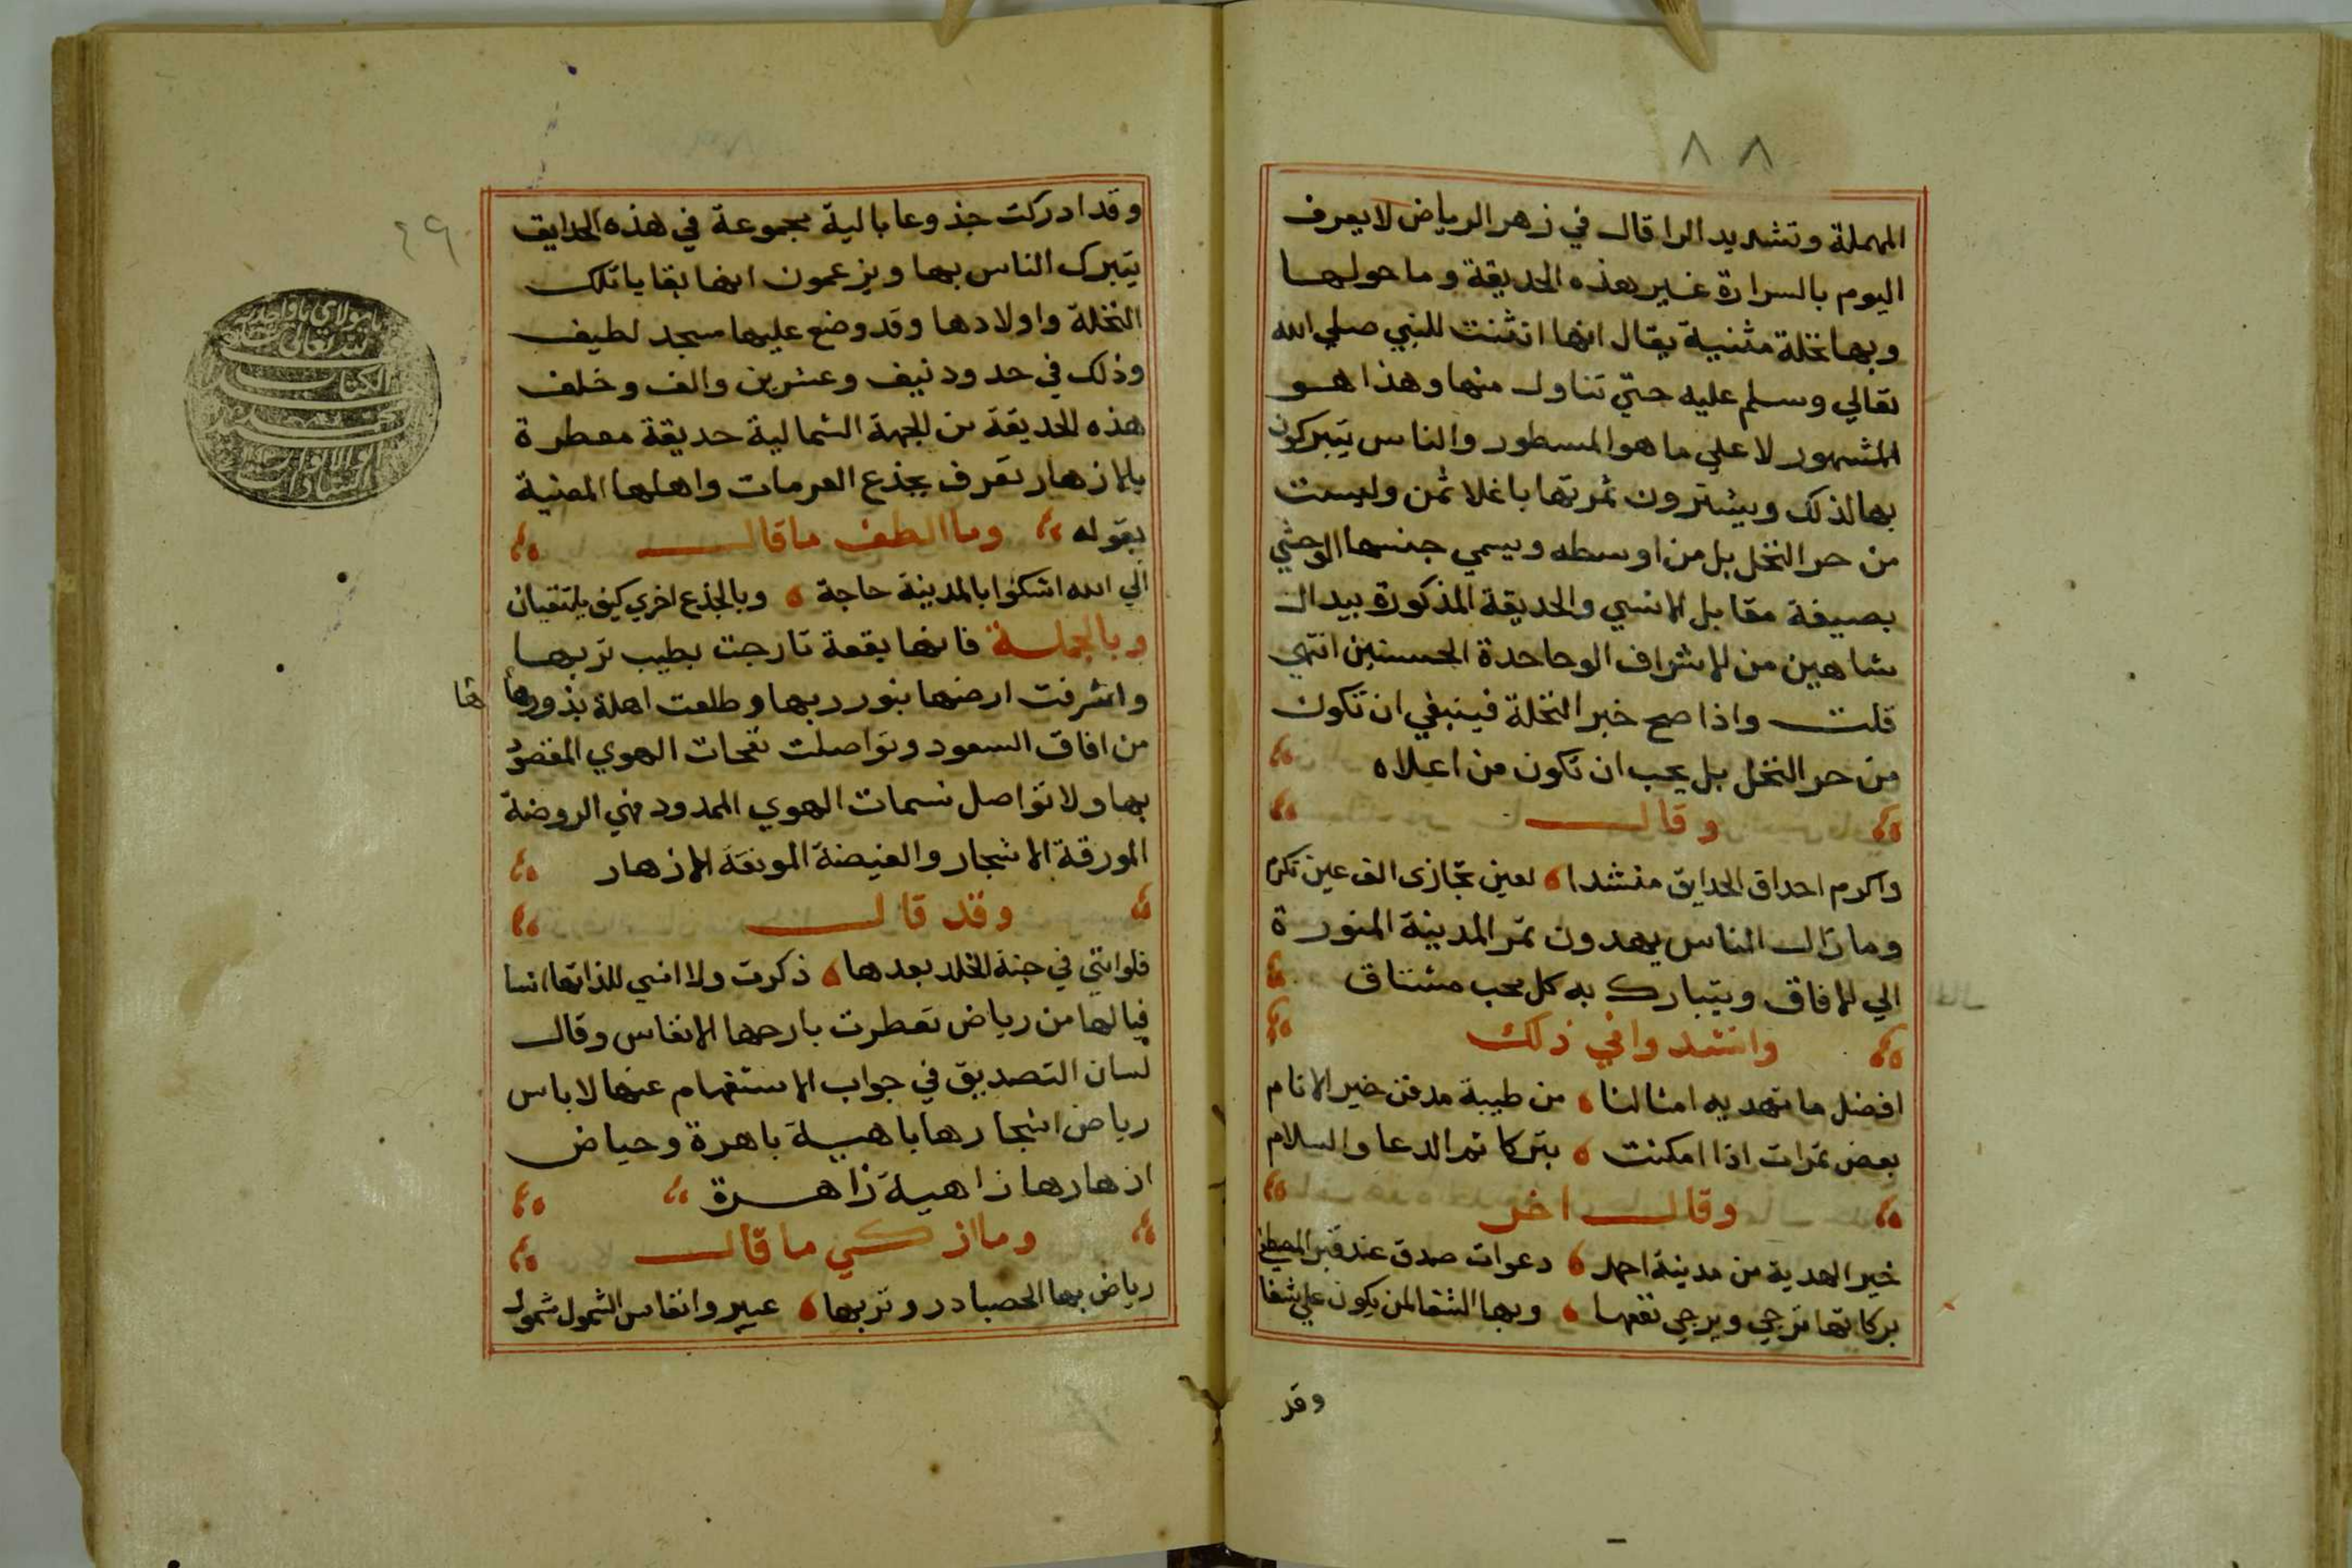 ٨٨
المهملة وتشديد الرا قال في زهر الرياض لا يعرف
اليوم بالسرارة غير هذه الحديقة وما حولها
وبها نخلة مثنية يقال انها انثنت للنبي صلي الله
تعالي وسلم عليه حتي تناول منها وهذا هو
المشهور لا علي ما هو المسطور والناس يتبركون
بها لذلك ويشترون ثمرتها باغلا ثمن وليست
من حر النخل بل من اوسطه ويسمي جنسها الوحشي
بصيفة مقابل الانسي والحديقة المذكورة بيد ال
شاهين من الاشراف الوحاحدة الحسنين انتهي
قلت واذا صح خبر النخلة فينبغي ان تكون
من حر النخل بل يجب ان تكون من اعلاه
وقال
واكرم احداق الحدايق منشدا لعين تجازى الف عين تكرم
وما زال الناس يهدون تمر المدينة المنورة
الي الافاق ويتبارك به كل محب مشتاق
وانشدوا في ذلك
افضل ما تهديه امثالنا من طيبة مدفن خير الانام
بعض تمرات اذا امكنت بتركا ثم الدعا والسلام
وقال اخر
خير الهدية من مدينة احمد دعوات صدق عند قبر المصطفي
بركاتها ترجي ويرجي نفعها وبها الشفا لمن يكون علي شفا
وقد
٤٩
وقد ادركت جذوعا بالية مجموعة في هذه الحدايق
يتبرك الناس بها ويزعمون انها بقايا تلك
النخلة واولادها وقد وضع عليها مسجد لطيف
وذلك في حدود نيف وعشرين والف وخلف
هذه الحديقة من الجهة الشمالية حديقة معطرة
بالازهار تعرف بجذع العرمات واهلها المعنية
بقوله وما الطف ما قال
الي الله اشكوا بالمدينة حاجة وبالجذع اخري كيف يلتقيان
وبالجملة فانها بقعة تارجت بطيب تربها
واشرفت ارضها بنور ربها وطلعت اهلة بذورها
ها
من افاق السعود وتواصلت نفحات الهوي المقصور
بها ولا تواصل نسمات الهوي الممدود فهي الروضة
المورقة الاشجار والغيضة المونقة الازهار
وقد قال
فلو انني في جنة الخلد بعدها ذكرت ولا انسي للذاتها انسا
فيالها من رياض تعطرت بارجها الانفاس وقال
لسان التصديق في جواب الاستفهام عنها لا باس
رياض اشجارها باهية باهرة وحياض
ازهارها زاهية زاهرة
وما ازكي ما قال
رياض بها الحصبا در وتربها عبير وانفاس الشمول شمول